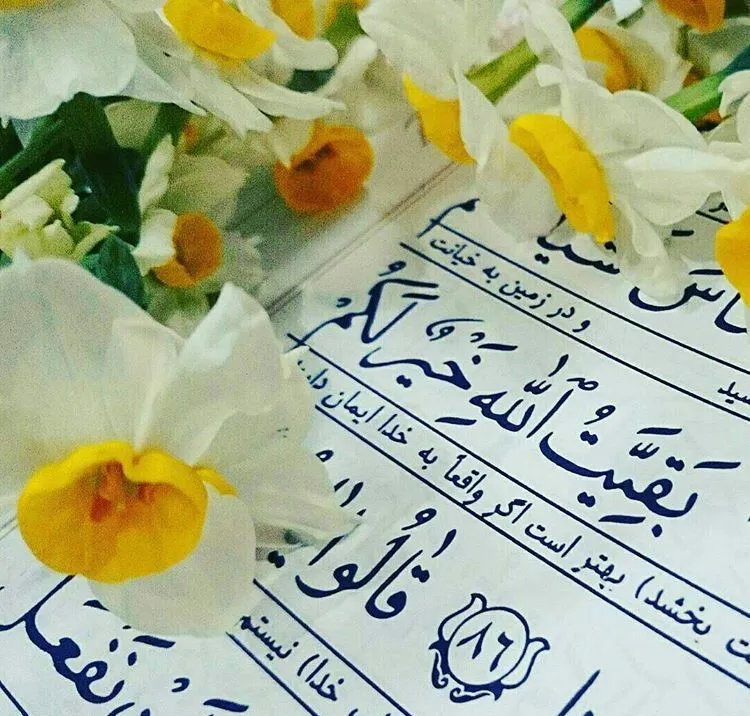 و در زمین به خیانت
بَقِيَّتُ اللّٰهِ خَيْرٌ لَكُمْ
بخشد) بهتر است اگر واقعاً به خدا ایمان
٨٦ قالُوا
خدا) نیستم
نَفْعَلَ